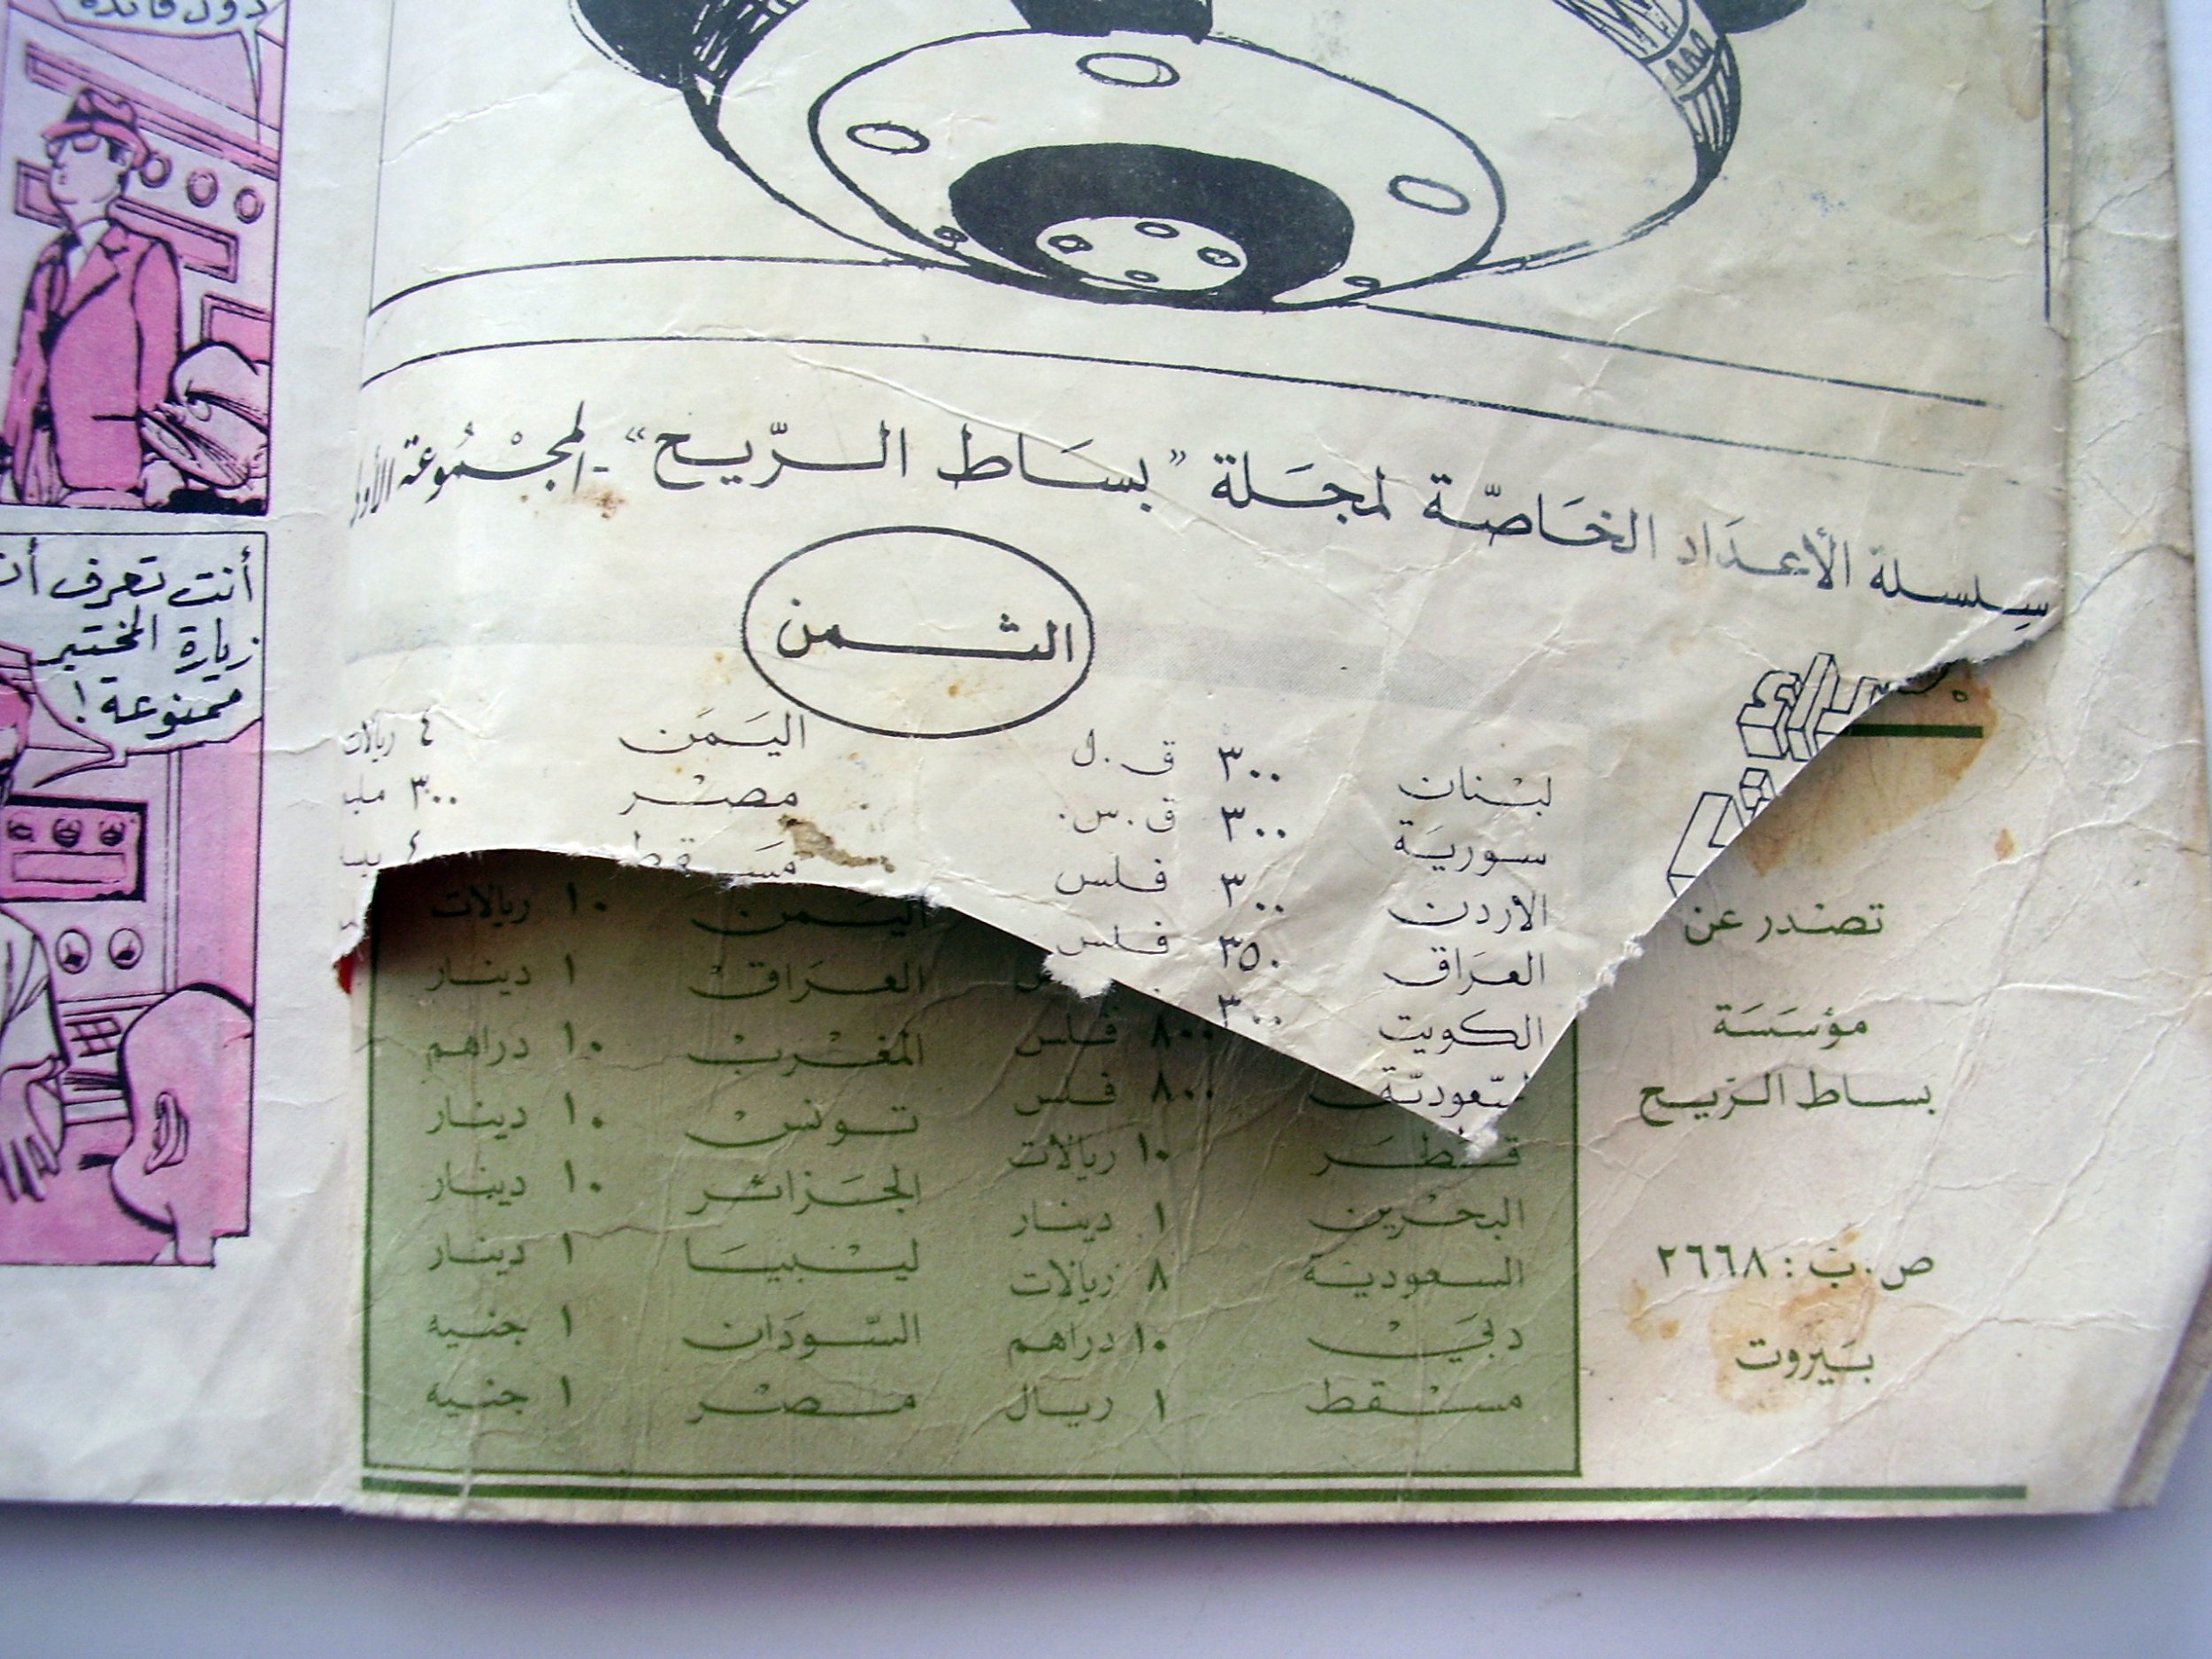 أنت تعرف أن
زيارة المختبر
ممنوعة!
سلسلة الأعداد الخاصّة لمجلة "بساط الرّيح" - المجموعة
الثمن
لبنان ٣٠٠ ق.ل
سورية ٣٠٠ ق.س.
الاردن ٣٠٠ فلس
العراق ٣٥٠ فلس
الكويت ٣٠٠
اليمن ٤ ريالات
مصر ٣٠٠
مسقط
٨٠٠ فلس
٨٠٠ فلس
قطر ١٠ ريالات
البحرين ١ دينار
السعودية ٨ ريالات
دبي ١٠ دراهم
مسقط ١ ريال
اليمن ١٠ ريالات
العراق ١ دينار
المغرب ١٠ دراهم
تونس ١٠ دينار
الجزائر ١٠ دينار
ليبيا ١ دينار
السّودان ١ جنيه
مصر ١ جنيه
تصدر عن
مؤسسة
بساط الريح
ص.ب: ٢٦٦٨
بيروت